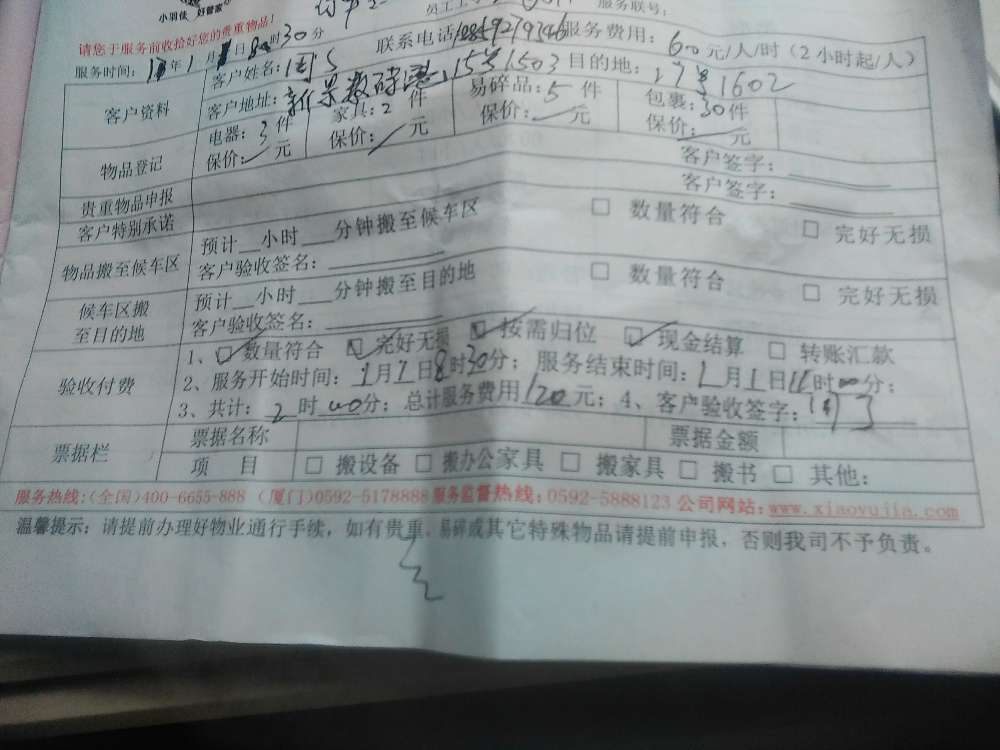 小羽佳 好管家
员工工号
服务联号:
请您于服务前收拾好您的贵重物品!
服务时间: 年1月 日8时30分 联系电话 服务费用: 60元/人/时(2小时起/人)
客户资料 客户姓名:
客户地址: 新景数码 15号1503 目的地: 17号1602
物品登记 电器: 3件 家具: 2件 易碎品: 5件 包裹: 30件
保价: / 元 保价: / 元 保价: / 元 保价: / 元
贵重物品申报 客户签字:
客户特别承诺 客户签字:
物品搬至候车区 预计__小时__分钟搬至候车区 □ 数量符合 □ 完好无损
客户验收签名:
候车区搬至目的地 预计__小时__分钟搬至目的地 □ 数量符合 □ 完好无损
客户验收签名:
验收付费 1、☑数量符合 ☑完好无损 ☑按需归位 ☑现金结算 □ 转账汇款
2、服务开始时间: 1月1日8时30分; 服务结束时间: 1月1日11时00分;
3、共计: 2时00分; 总计服务费用120元; 4、客户验收签字:
票据栏 票据名称 票据金额
项 目 □ 搬设备 □ 搬办公家具 □ 搬家具 □ 搬书 □ 其他:
服务热线:(全国)400-6655-888 (厦门)0592-5178888 服务监督热线: 0592-5888123 公司网站: www.xiaoyujia.com
温馨提示: 请提前办理好物业通行手续, 如有贵重, 易碎或其它特殊物品请提前申报, 否则我司不予负责。